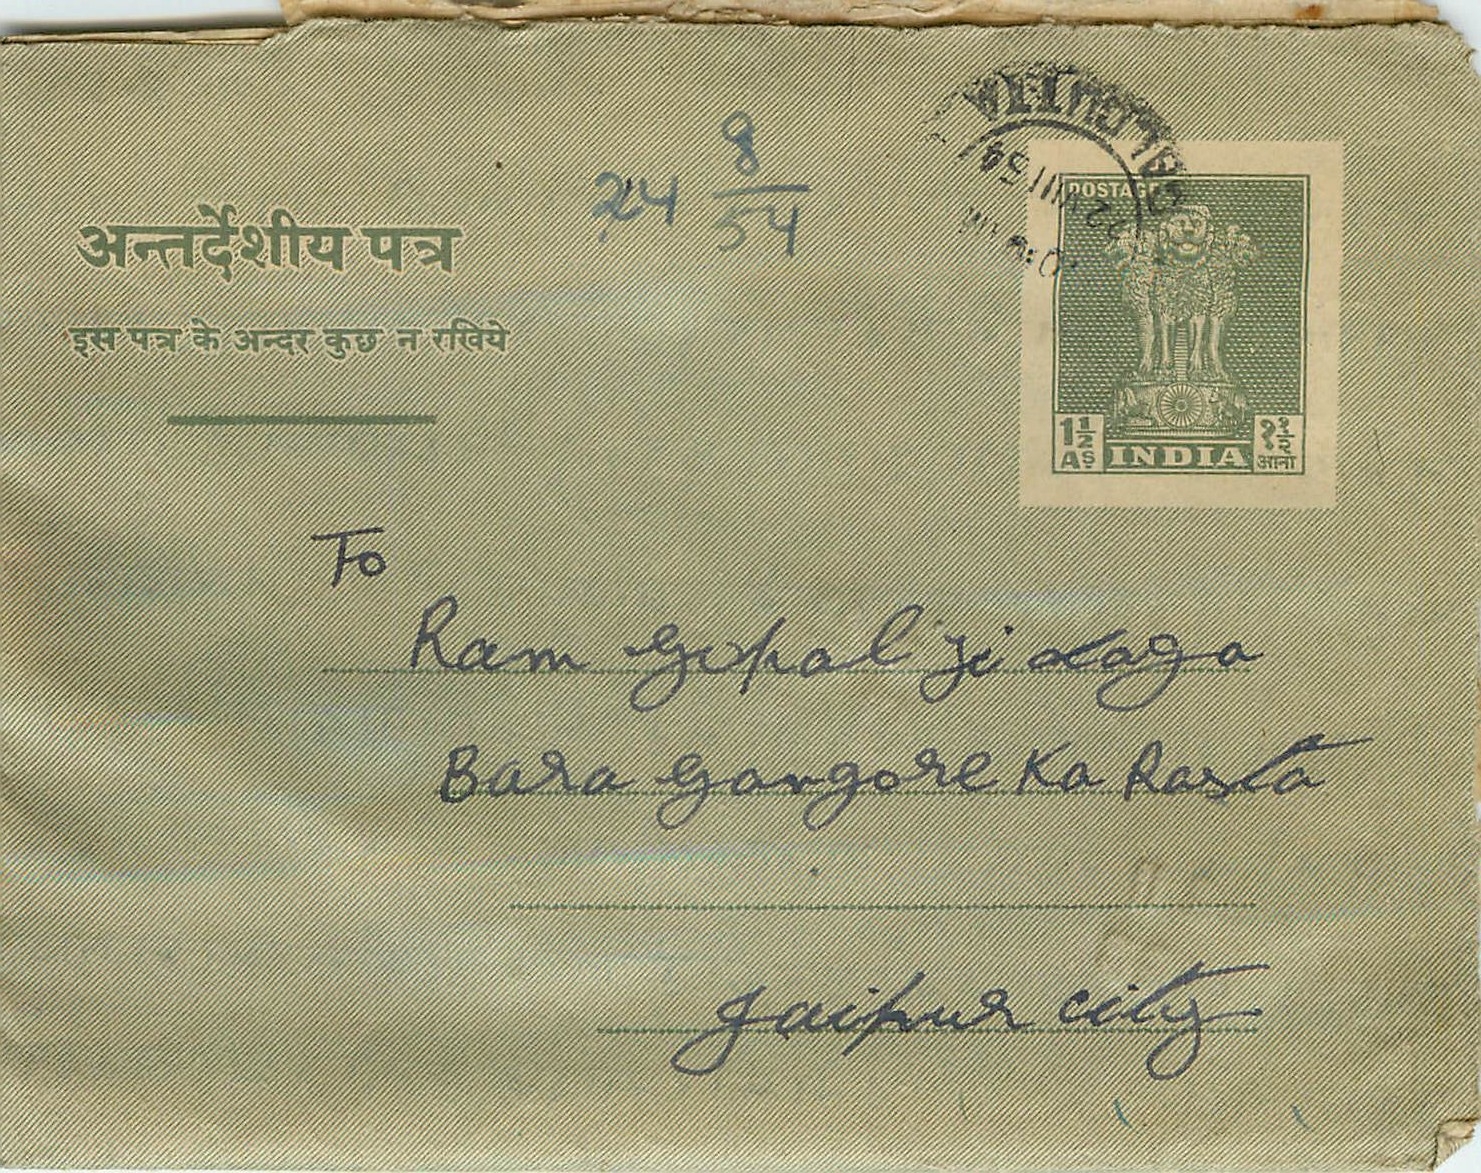 अन्तर्देशीय पत्र
इस पत्र के अन्दर कुछ न रखिये
24 8/54
22 VIII 54
POSTAGE
1½ As
INDIA
१½ आना
To
Ram Gopal Ji Laga
Bara Gangore Ka Rasta
Jaipur City